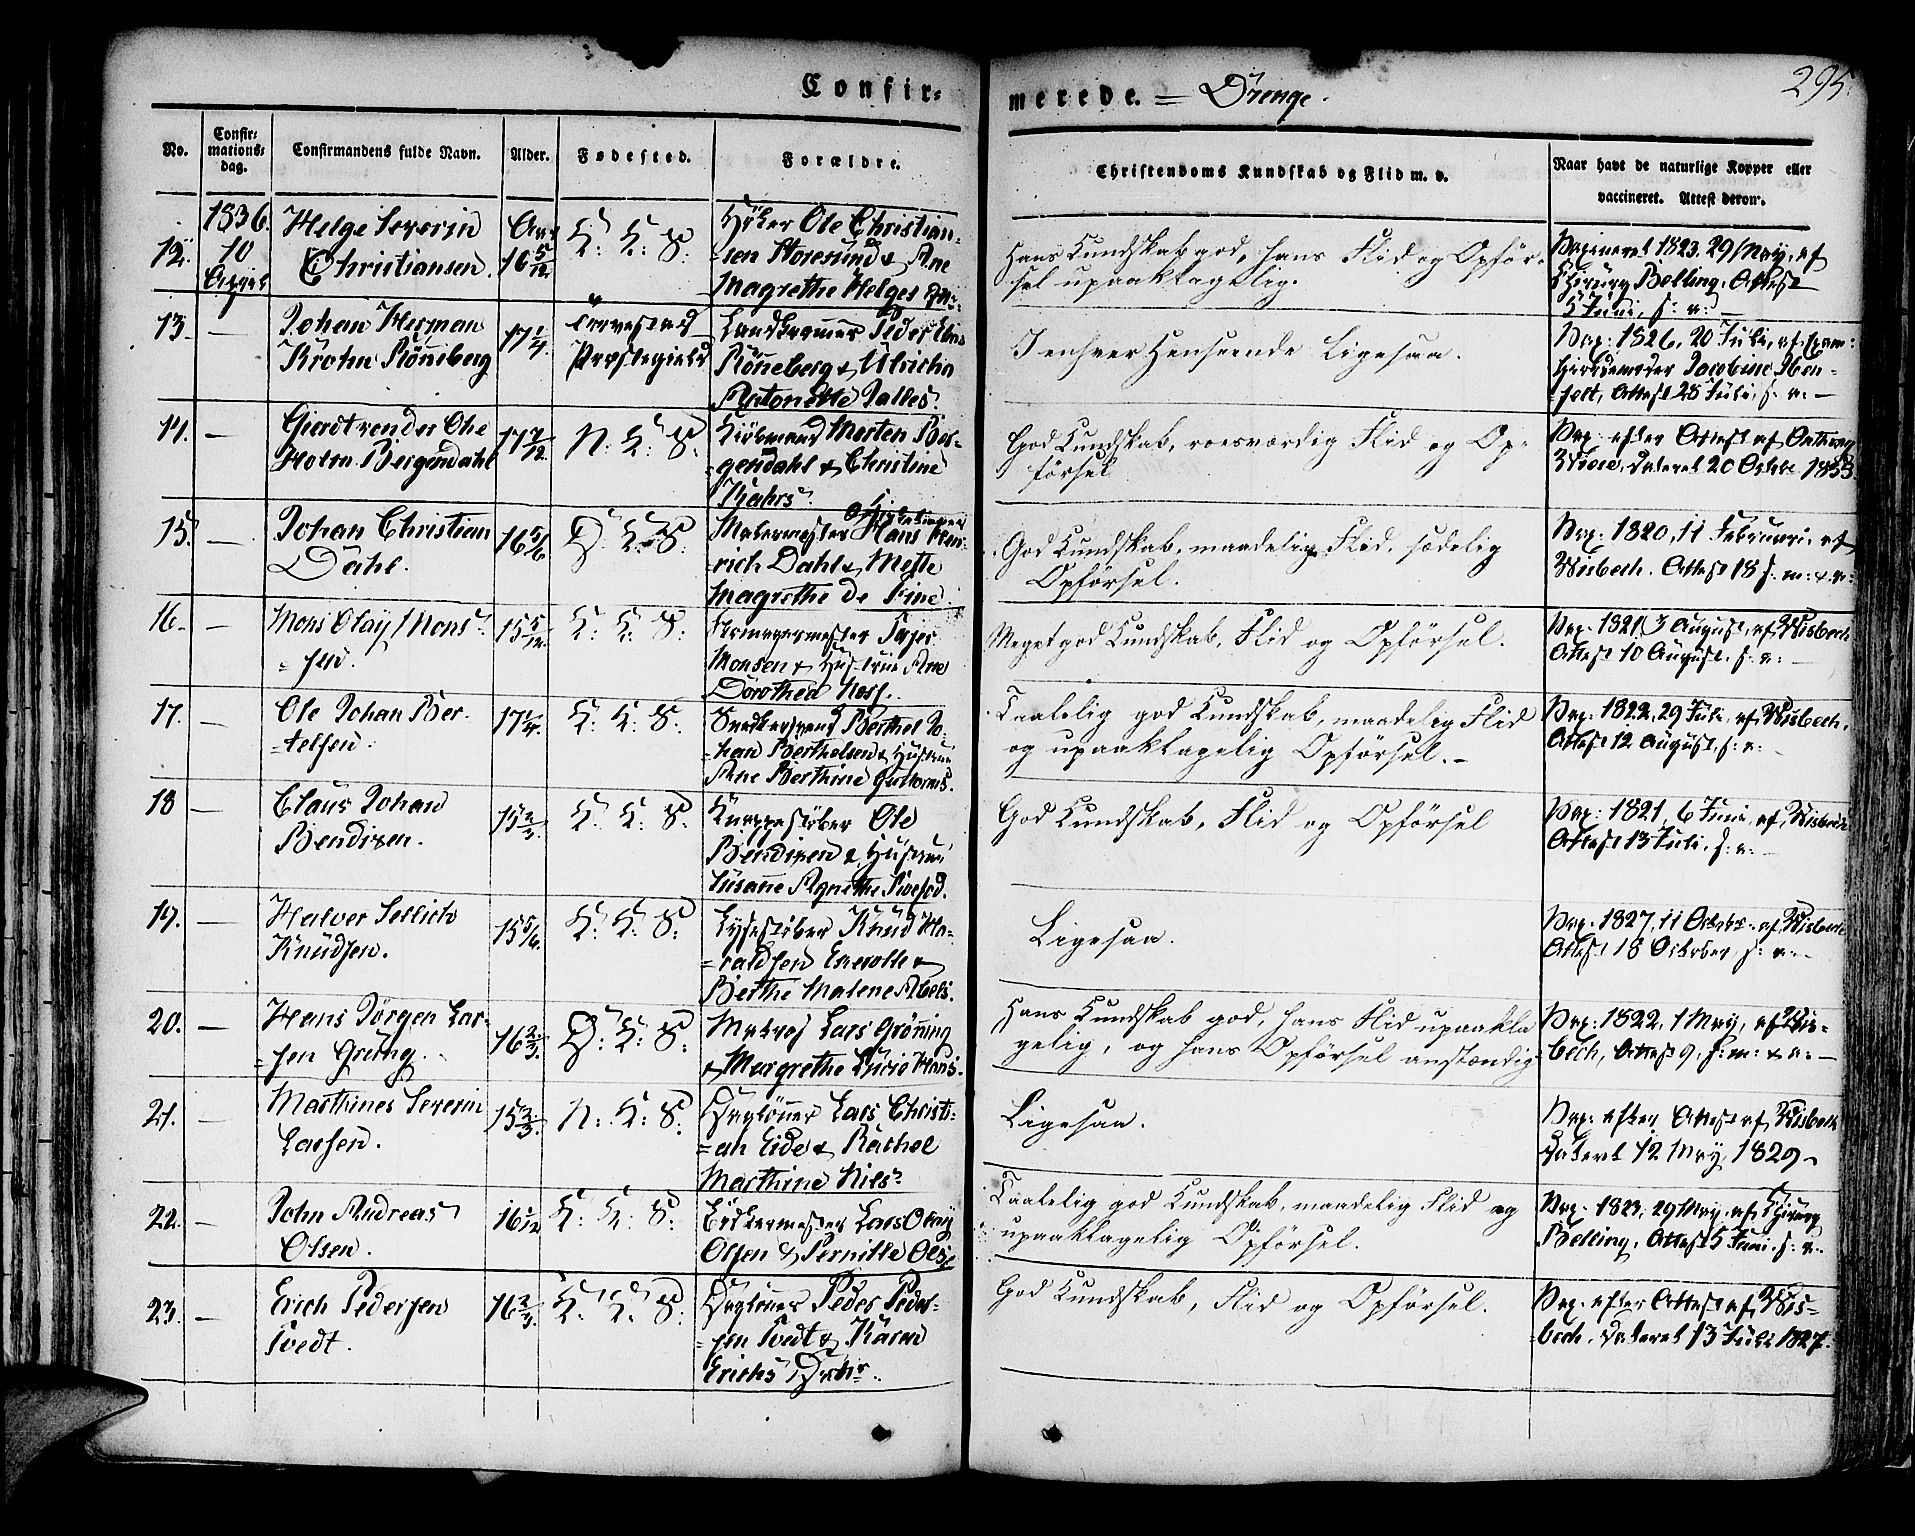 Confir-
merede. = Drenge.
295.
No.
Confir-
mations-
dag.
Confirmandens fulde Navn.
Alder.
Fødested.
Forældre.
Christendoms Kundskab og Flid m. v.
Naar havt de naturlige Kopper eller
vaccineret. Attest derom.
12.
1836.
10
April
Helge Severin
Christiansen.
Aar
16 5/12
K: K: S:
Høker Ole Christian-
sen Storesund & Ane
Magrethe Helges Dr:
Hans Kundskab god, hans Flid og Opfør-
sel upaaklagelig.
Vaxineret 1823. 29 May, af
Chirurg Belling, Attest
5 Juni, s: a:
13.
—
Johan Herman
Krohn Röneberg
17 1/4.
Præstegield
Peder
Röneberg & Ulricha
Antonette Dalles.
I enhver Henseende Ligesaa.
Vax: 1826, 20 Juli, af Exam:
Jacobine
Attest 28 Juli, s: a: —
14.
—
Giert von der Ohe
Holm Bergendahl
17 7/12.
N: K: S:
Kiøbmand Morten Ber-
gendahl & Christine
Kahrs.
God Kundskab, roesværdig Flid og Op-
førsel
Vax: efter Attest af
dateret 20 Octbr 1833.
15.
—
Johan Christian
Dahl.
16 5/6.
D: K: S:
Malermester Hans Hen-
rich Dahl & Mette
Magrethe de Fine.
God Kundskab, maadelig Flid, sædelig
Opførsel.
Vax: 1820, 11 Februari, af
Wisbech. Attest 18 s: m: & a:
16.
—
Mons Olay Mons-
sen.
15 5/12.
K: K: S:
Monsen & Hustrue Ane
Dorothea Ness.
Meget god Kundskab, Flid og Opførsel.
Vax: 1821, 3 August, af Wisbech
Attest 10 August, s: a: —
17.
—
Ole Johan Ber-
telsen.
17 1/4.
K: K: S:
Snedkersvend Berthel Jo-
han Berthelsen & Hustrue
Ane Berthine Guttorms.
Taalelig god Kundskab, maadelig Flid
og upaaklagelig Opførsel. —
Vax: 1822, 29 Juli, af Wisbech,
Attest 12 August, s: a: —
18
—
Claus Johan
Bendixen.
15 2/3.
K: K: S:
Ole
Bendixen & Hustrue
Susanne Agnethe
God Kundskab, Flid og Opførsel
Vax: 1821, 6 Juni, af Wisbech
Attest 13 Juli, s: a: —
19.
—
Halver Sellich
Knudsen.
15 5/6.
K: K: S:
Lysestøber Knud Ha-
raldsen &
Berthe Malene Abels.
Ligesaa.
Vax: 1827, 11 October, af Wisbech
Attest 18 October, s: a: —
20.
—
Hans Jörgen Lar-
sen Gröng.
16 2/3.
D: K: S:
Matros Lars Grönning
& Margrethe Lucie Hans.
Hans Kundskab god, hans Flid upaakla
gelig, og hans Opførsel anstændig
Vax: 1822, 1 May, af Wis-
bech, Attest 9, s: m: & a: —
21.
—
Marthines Severin
Larsen.
15 2/3.
N: K: S:
Dagløner Lars Christi-
an Eide & Rachel
Marthine Niels
Ligesaa.
Vax: efter Attest af Wisbech
dateret 12 May 1829.
22.
—
John Andreas
Olsen.
16 1/12
K: K: S:
Bødkermester Lars Olay
Olsen & Pernille Ols
Taalelig god Kundskab, maadelig Flid og
upaaklagelig Opførsel.
Vax: 1823, 29 May, af Chirurg
Belling, Attest 5 Juni, s: a:
23.
—
Erich Pedersen
Tvedt.
16 2/3.
K: K: S:
Dagløner Peder Peder-
sen Tvedt & Karen
Erichs Datr.
God Kundskab, Flid og Opførsel.
Vax: efter Attest af Wis-
bech, dateret 13 Juli 1827.